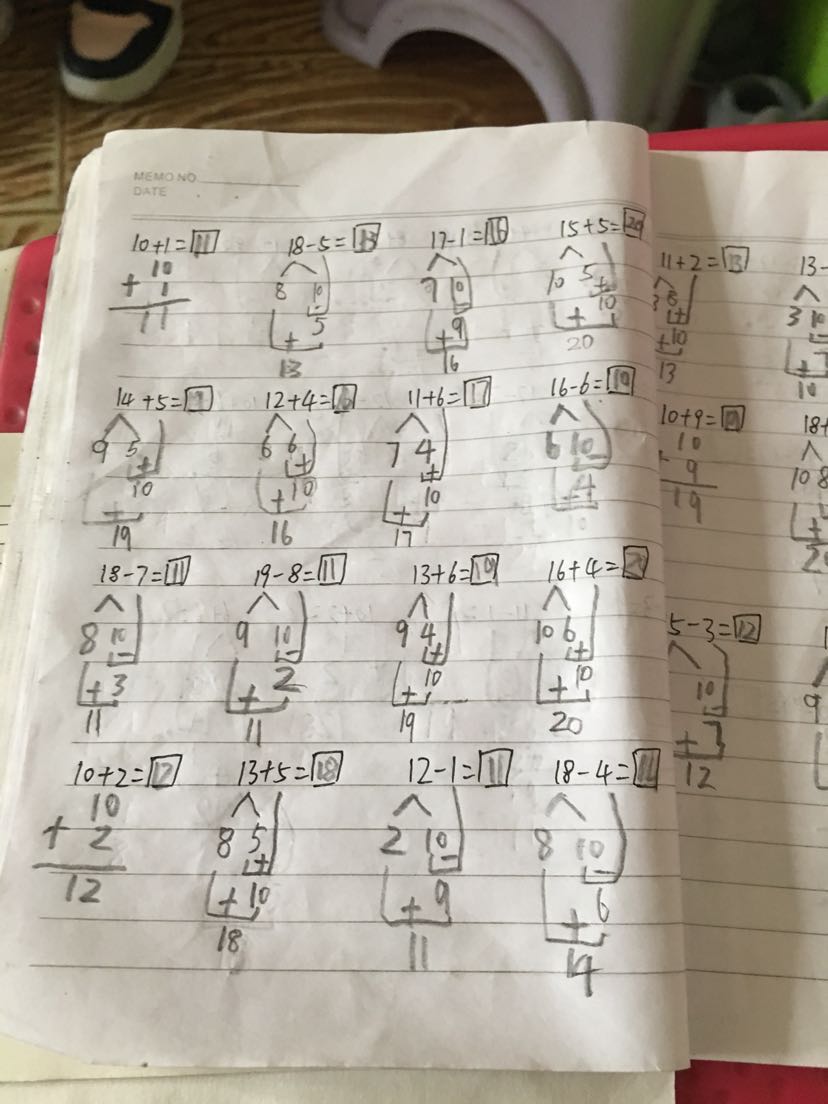 MEMO NO
DATE
10+1=11 18-5=13 17-1=16 15+5=20
10 8 10 7 10 10 5
+ 1 - - +
11 + 5 + 9 + 10
13 16 20
14+5= 12+4=16 11+6=17 16-6=
9 5 6 6 7 4 6 10
+ + + -
+ 10 + 10 + 10 + 4
19 16 17 10
18-7=11 19-8=11 13+6=19 16+4=20
8 10 9 10 9 4 10 6
- - + +
+ 3 + 2 + 10 + 10
11 11 19 20
10+2=12 13+5=18 12-1=11 18-4=14
10 8 5 2 10 8 10
+ 2 + - -
12 + 10 + 9 + 6
18 11 14
11+2=13 13-
3 8 3 10
+ -
+10 +
13 10
10+9= 18+
10 10 8
9 +
19 20
5-3=12
10 9
-
+7
12